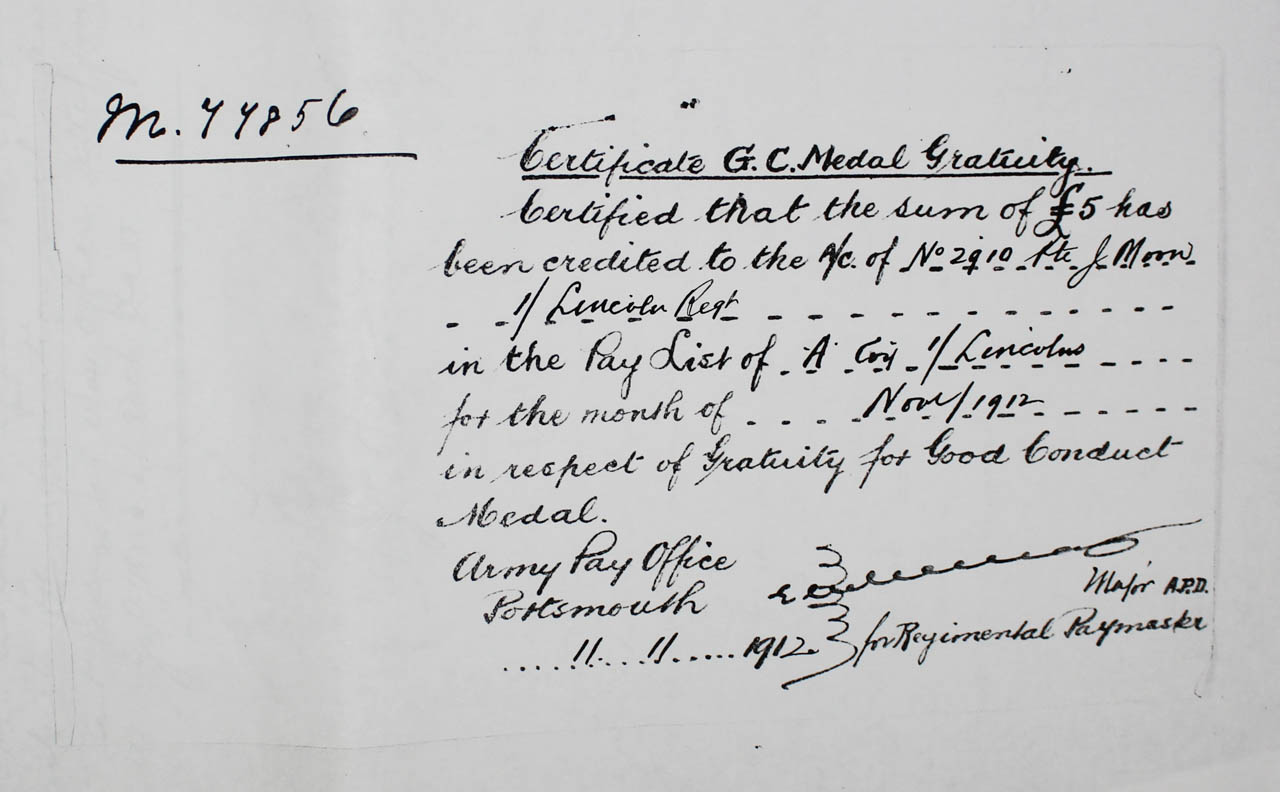 M. 77856
Certificate G.C. Medal Gratuity.
Certified that the sum of £5 has
been credited to the a/c. of No 2910 Pte J Moon
1/ Lincoln Regt
in the Pay List of A Coy 1/ Lincolns
for the month of Novr/1912
in respect of Gratuity for Good Conduct
Medal.
Army Pay Office
Portsmouth
Major A.P.D.
11 11 1912. for Regimental Paymaster